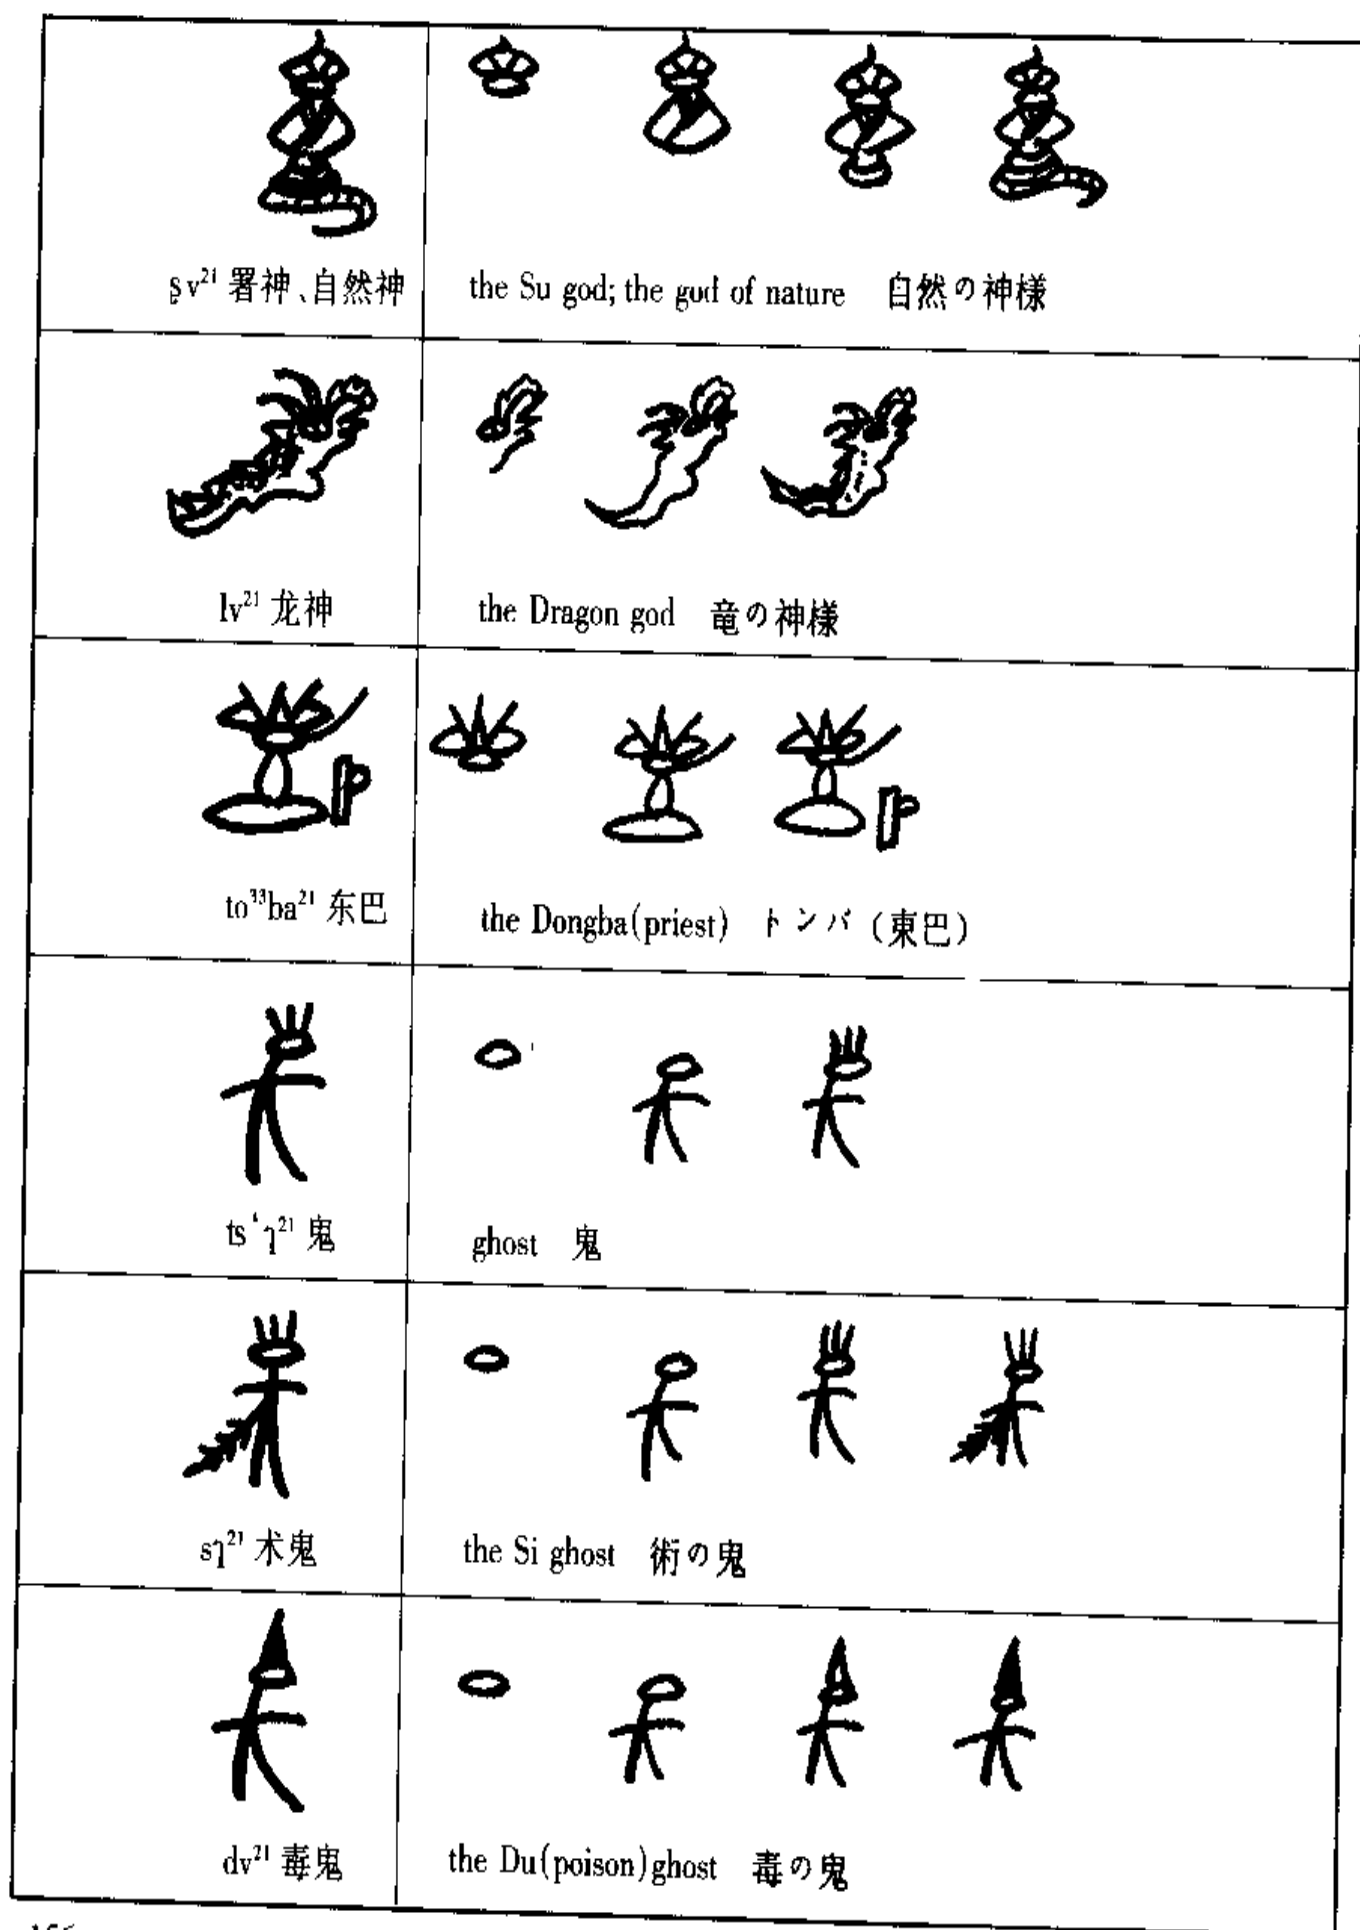 ʂv²¹ 署神、自然神
the Su god; the god of nature 自然の神様
lv²¹ 龙神
the Dragon god 竜の神様
to³³ba²¹ 东巴
the Dongba(priest) トンバ（東巴）
ts‘ɿ²¹ 鬼
ghost 鬼
sɿ²¹ 术鬼
the Si ghost 術の鬼
dv²¹ 毒鬼
the Du(poison)ghost 毒の鬼